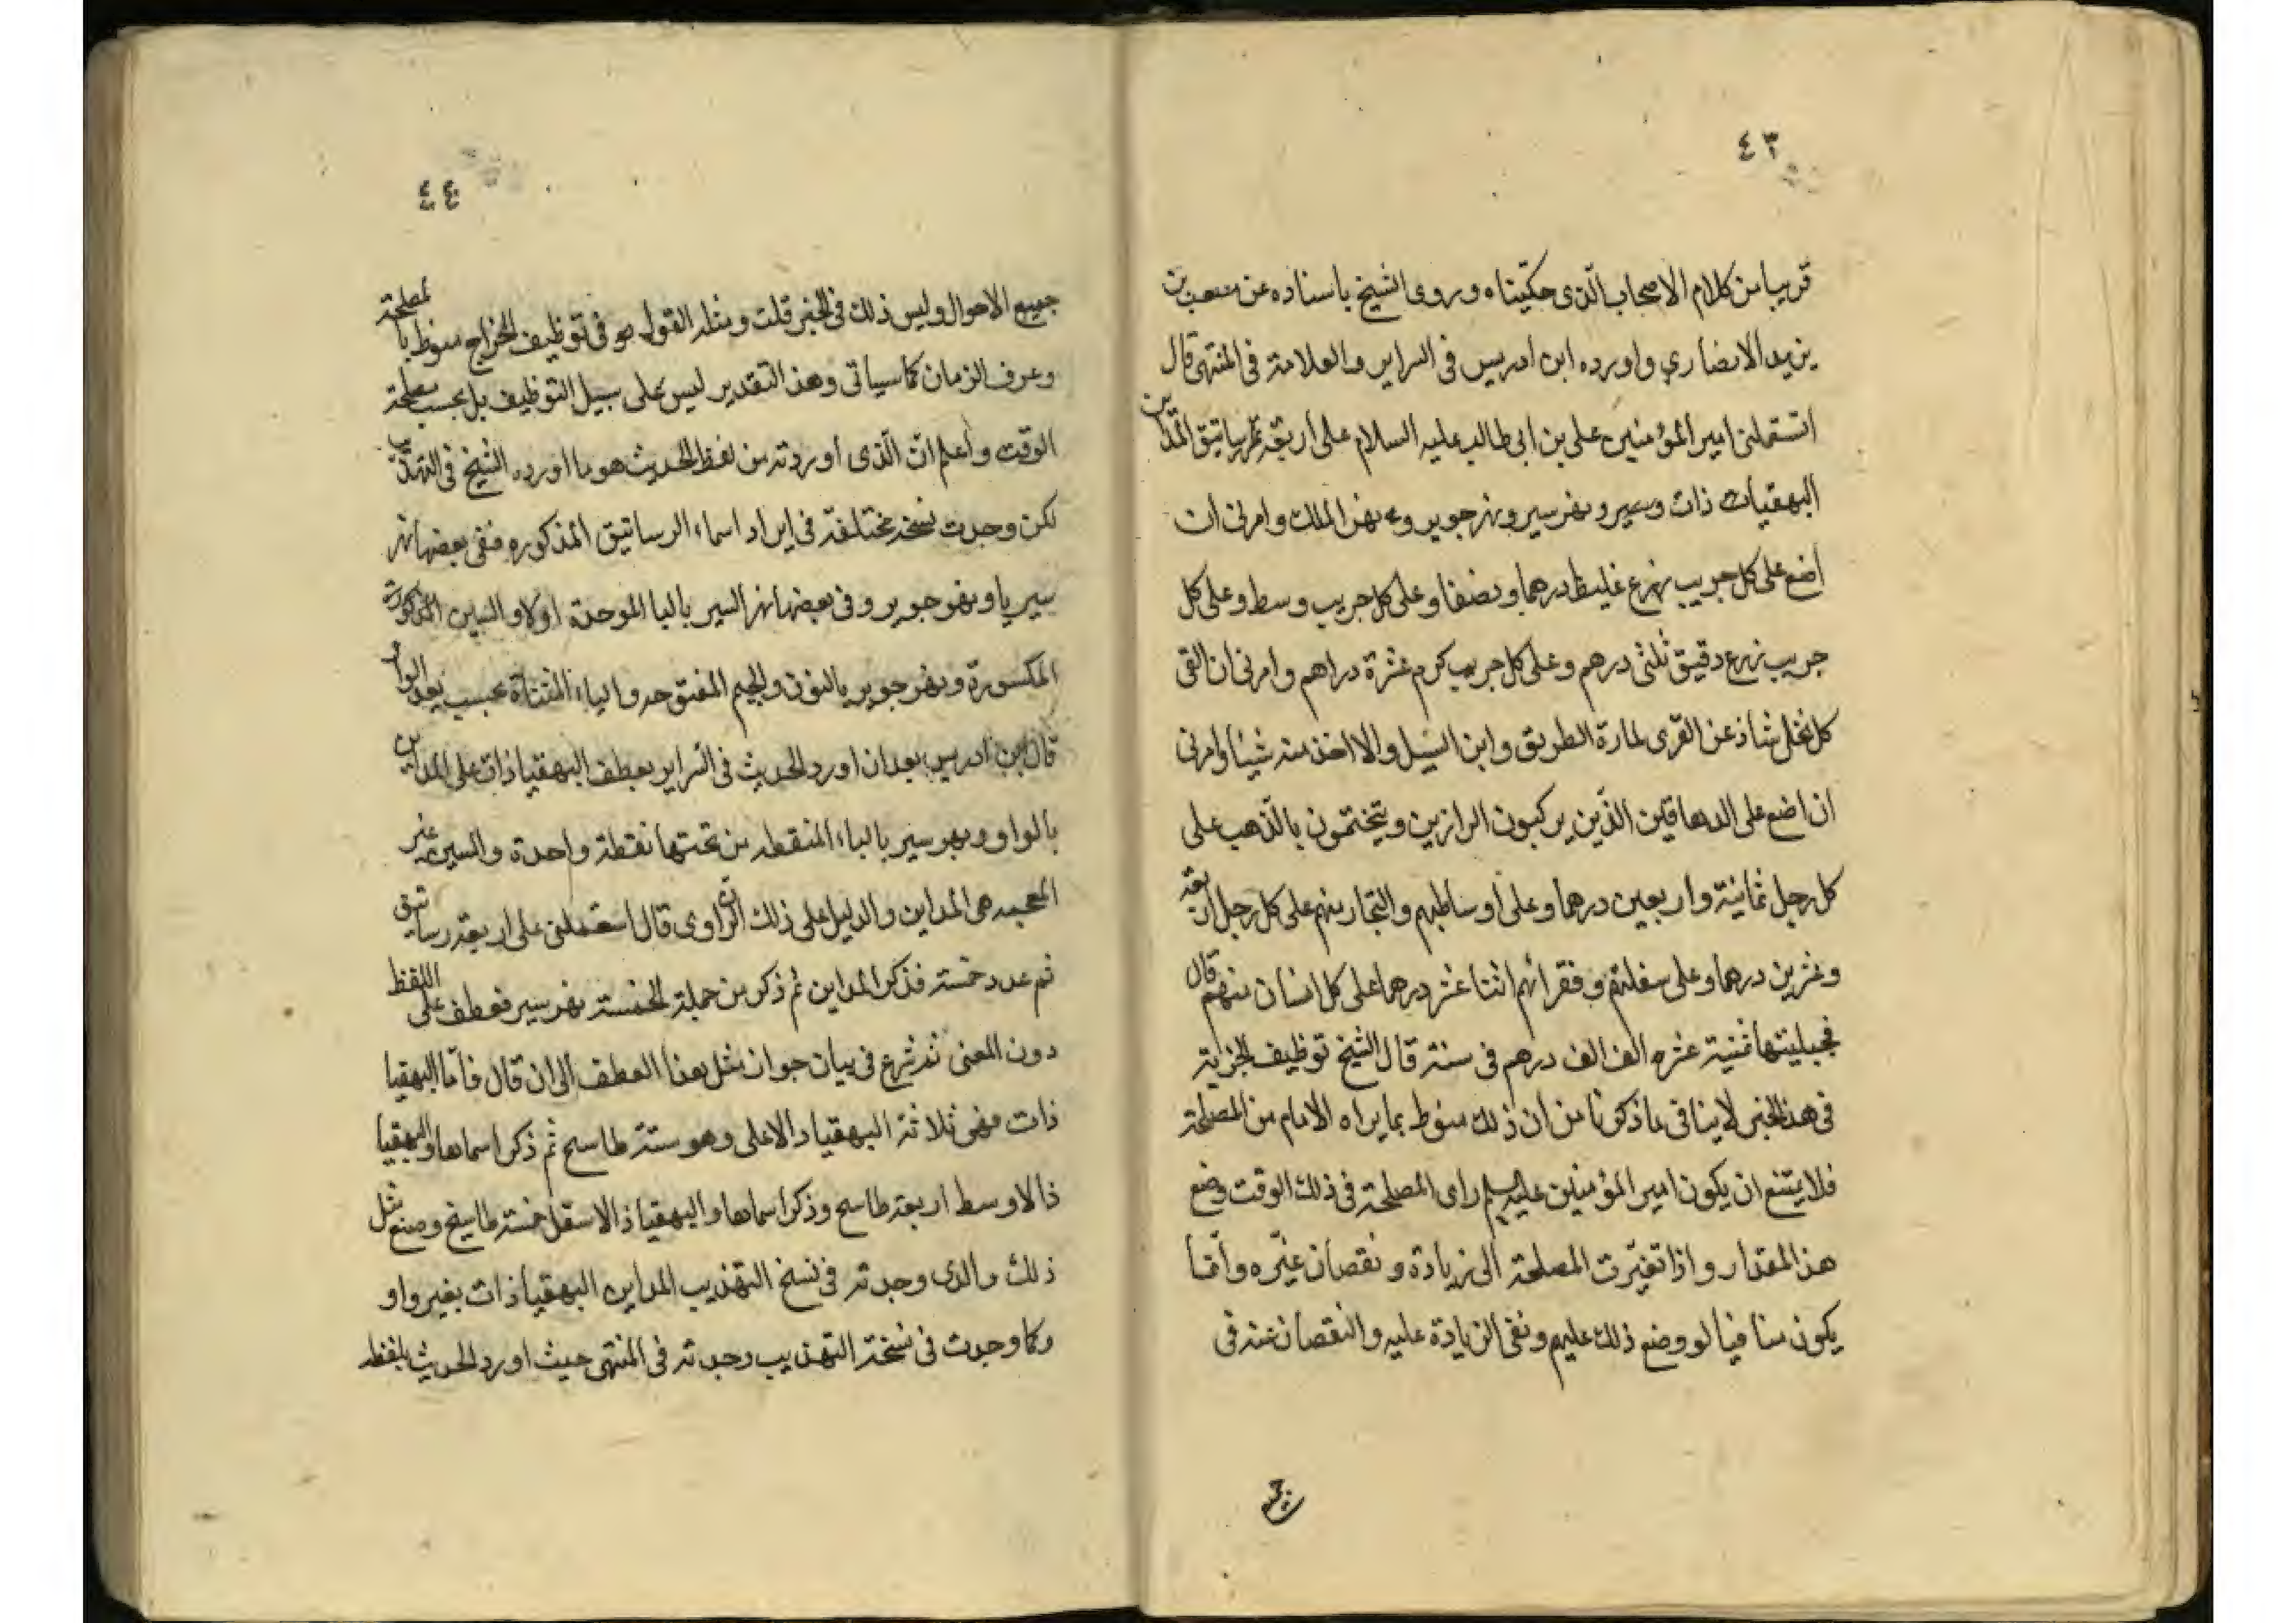 ٤٣
قريبا من كلام الاصحاب الّذى حكيناه وروى الشيخ باسناده عن مصعب بن
يزيد الانصاري واورده ابن ادريس فى السراير والعلامة فى المنتهى قال
استعملنى امير المؤمنين على بن ابى طالب عليه السلام على اربعة رساتيق المداين
البهقياذات ونهر سير ونهر جوير ونهر الملك وامرنى ان
اضع على كل جريب زرع غليظ درهما ونصفا وعلى كل جريب وسط وعلى كل
جريب زرع رقيق ثلثى درهم وعلى كل جريب كرم عشرة دراهم وامرنى ان القى
كل نخل شاذ عن القرى لمارة الطريق وابن السبيل ولا اخذ منه شيئا وامرنى
ان اضع على الدهاقين الذّين يركبون البراذين ويتختمون بالذّهب على
كل رجل ثمانية واربعين درهما وعلى اوساطهم والتجار منهم على كل رجل اربعة
وعشرين درهما وعلى سفلتهم وفقرائهم اثنا عشر درهما على كل انسان منهم قال
فجبيتها ثمنية عشره الف الف درهم فى سنة قال الشيخ توظيف الجزية
فى هذا الخبر لا ينافى ما ذكرنا من ان ذلك منوط بما يراه الامام من المصلحة
فلا يمتنع ان يكون امير المؤمنين عليه السلم راى المصلحة فى ذلك الوقت وضع
هذا المقدار واذا تغيّرت المصلحة الى زيادة ونقصان غيّره وانّما
يكون منافيا لو وضع ذلك عليهم ونفى الزيادة عليه والنقصان عنه فى
٤٤
جميع الاحوال وليس ذلك فى الخبر قلت ومثله القول هو فى توظيف الخراج منوط بالمصلحة
وعرف الزمان كما سياتى وهذا التقدير ليس على سبيل التوظيف بل بحسب مصلحة
الوقت واعلم انّ الّذى أوردته من لفظ الحديث هو ما اورده الشيخ فى التهذيب
لكن وجدت نسخه مختلفة فى ايراد اسماء الرساتيق المذكوره ففى بعضها نهر
سيريا ونهر جوير وفى بعضها نهر السير بالبا الموحدة اولا والسين المذكورة
المكسورة ونهر جوير بالنون والجيم المفتوحه والياء المثناة بحسب بعد الواو
قال ابن ادريس بعد ان اورد الحديث فى السراير بعطف البهقياذات على المداين
بالواو وبهر سير بالباء المنقطه من تحتها نقطة واحدة والسين غير
المعجمه هى المداين والدليل على ذلك انّ الراوى قال استعملنى على اربعة رساتيق
ثم عدد خمسة فذكر المداين ثم ذكر من جملة الخمسة نهر سير فعطف على اللفظ
دون المعنى ثم شرع فى بيان جواز مثل هذا العطف الى ان قال فامّا البهقيا
ذات فهى ثلاثة البهقياد الاعلى وهو ستة طاسح ثم ذكر اسماها والبهقيا
ذ الاوسط اربعة طاسح وذكر اسماها والبهقياذ الاسفل خمسة طاسيح وصنع مثل
ذلك والذى وجدته فى نسخ التهذيب المداين البهقياذات بغير واو
وكما وجدت فى نسخة التهذيب وجدته فى المنتهى حيث اورد الحديث بلفظه